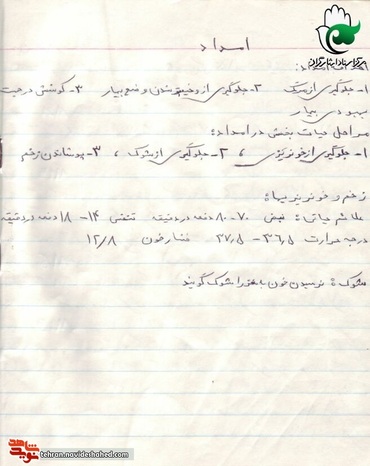 امداد
مرکز اسناد ایثارگران
امداد:
۱- جلوگیری از مرگ ۲- جلوگیری از وخیم‌شدن وضع بیمار ۳- کوشش در جهت
بهبودی بیمار
مراحل حیات بخش در امداد:
۱- جلوگیری از خونریزی، ۲- جلوگیری از شوک، ۳- پوشاندن زخم
زخم و خونریزیها:
علائم حیاتی: نبض ۷۰-۸۰ دفعه در دقیقه تنفس ۱۴-۱۸ دفعه در دقیقه
درجه حرارت ۳۶٫۵-۳۷٫۵ فشار خون ۱۲/۸
شوک: نرسیدن خون به مغز را شوک گویند
نوید شاهد
tehran.navideshahed.com